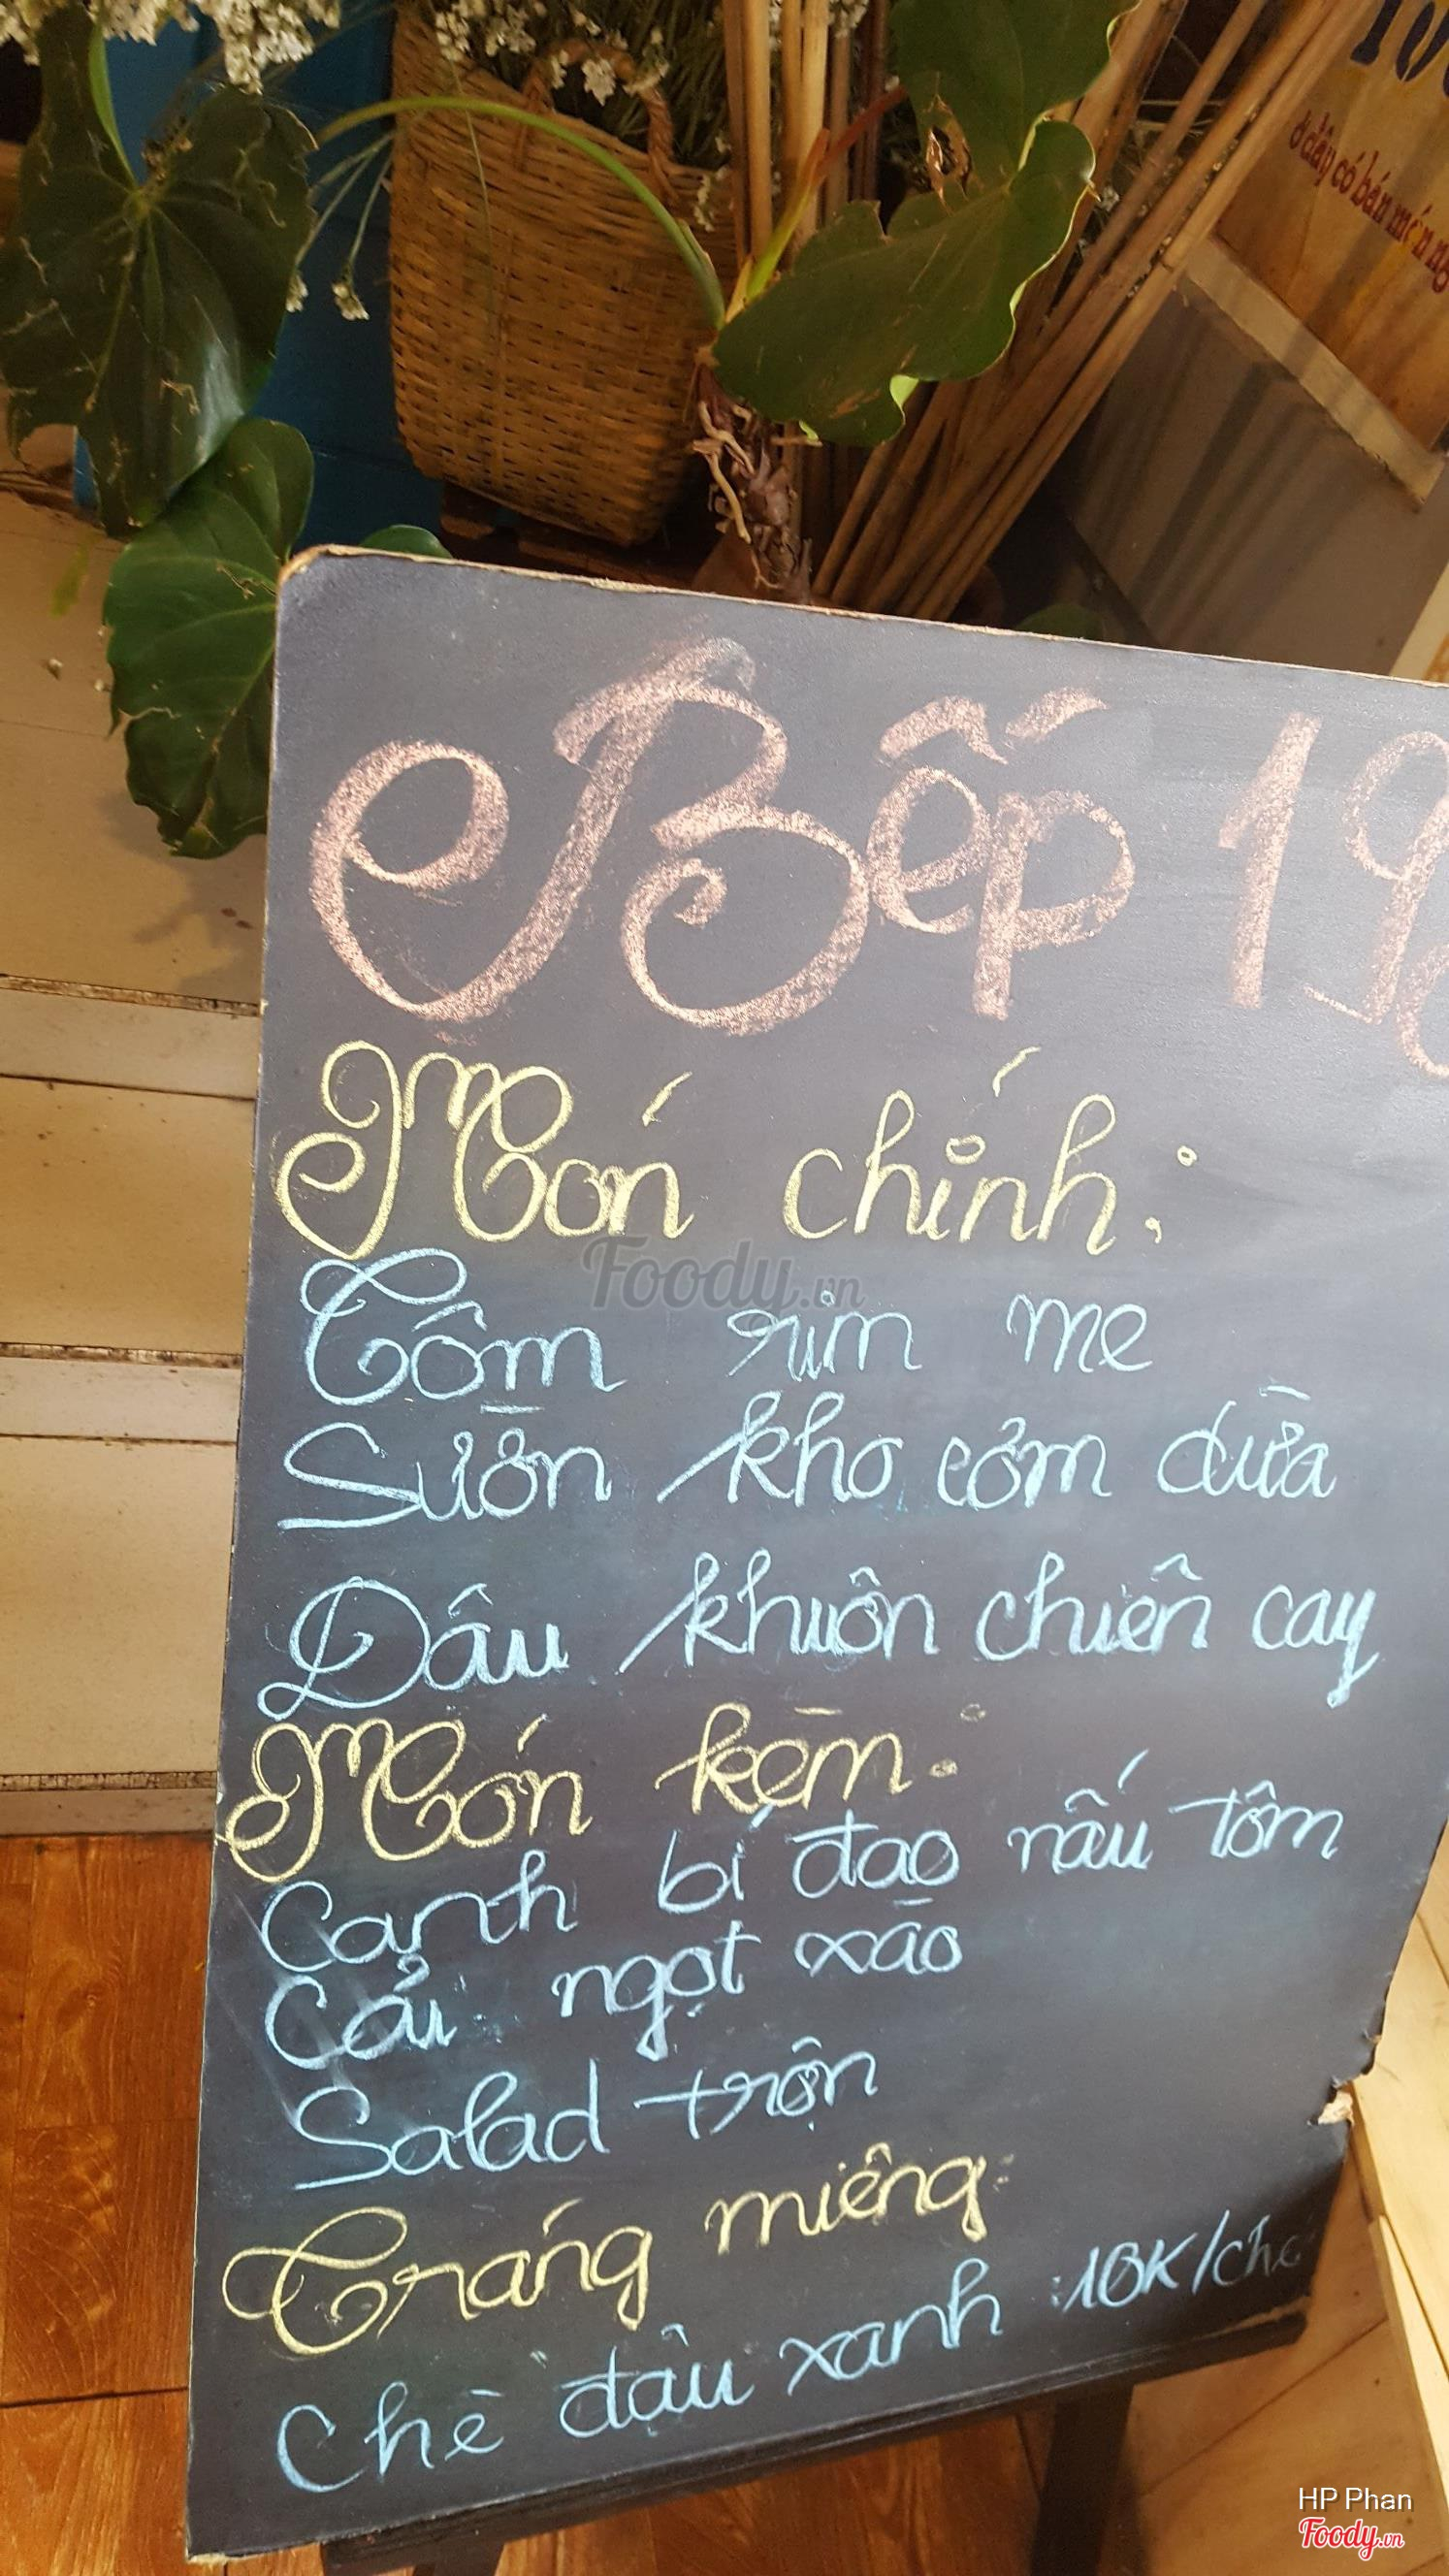 ở đây có bán
Bếp 19
Món chính:
Tôm rim me
Sườn kho cơm dừa
Đậu khuôn chiên cay
Món kèm:
Canh bí đao nấu tôm
Cải ngọt xào
Salad trộn
Tráng miệng:
Chè đậu xanh :10K/
Foody.vn
HP Phan
Foody.vn